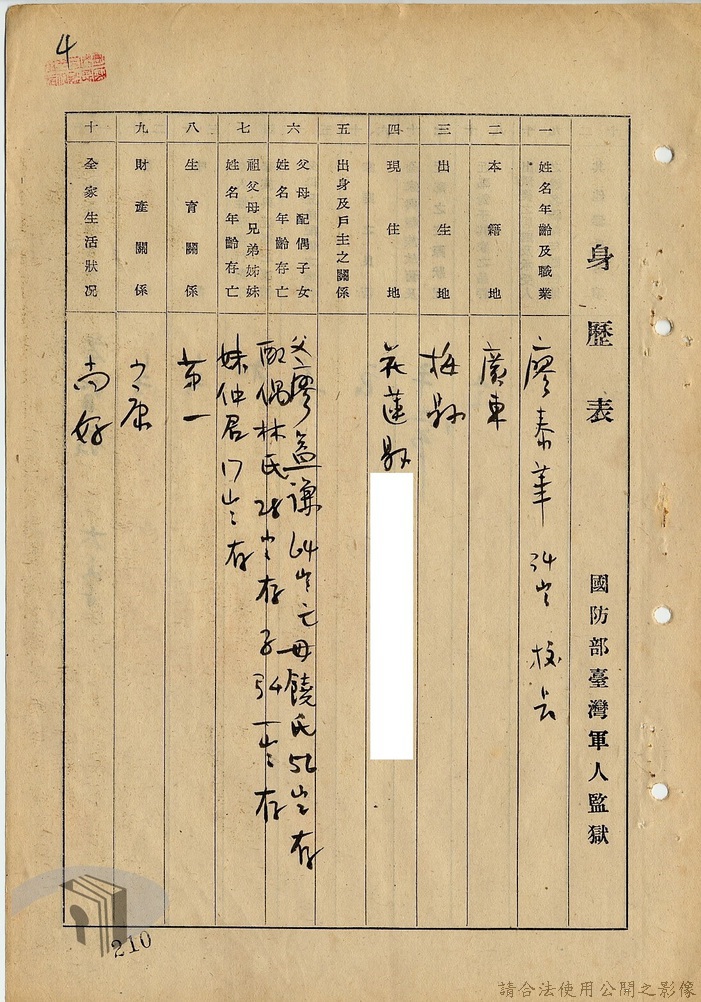 4
身歷表
國防部臺灣軍人監獄
一 姓名年齡及職業 廖泰華 34岁 校长
二 本籍地 廣東
三 出生地 梅縣
四 現住地 花蓮縣
五 出身及戶主之關係
六 父母配偶子女姓名年齡存亡 父廖益谦 64岁亡 母饒氏 56岁存
配偶林氏 28岁存 子 一岁存
七 祖父母兄弟姊妹姓名年齡存亡 妹仲君 17岁存
八 生育關係 第一
九 財產關係 小康
十 全家生活狀况 尚好
210
請合法使用公開之影像